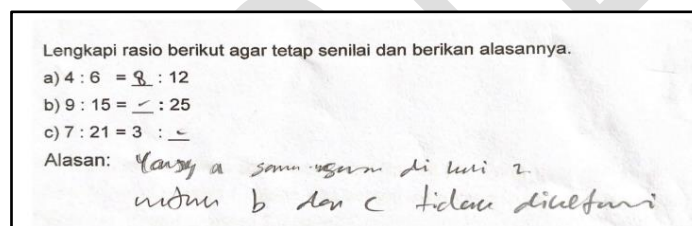 Lengkapi rasio berikut agar tetap senilai dan berikan alasannya.
a) 4 : 6 = 8 : 12
b) 9 : 15 = - : 25
c) 7 : 21 = 3 : -
Alasan: Yang a sama-sama di kali 2
untuk b dan c tidak diketahui